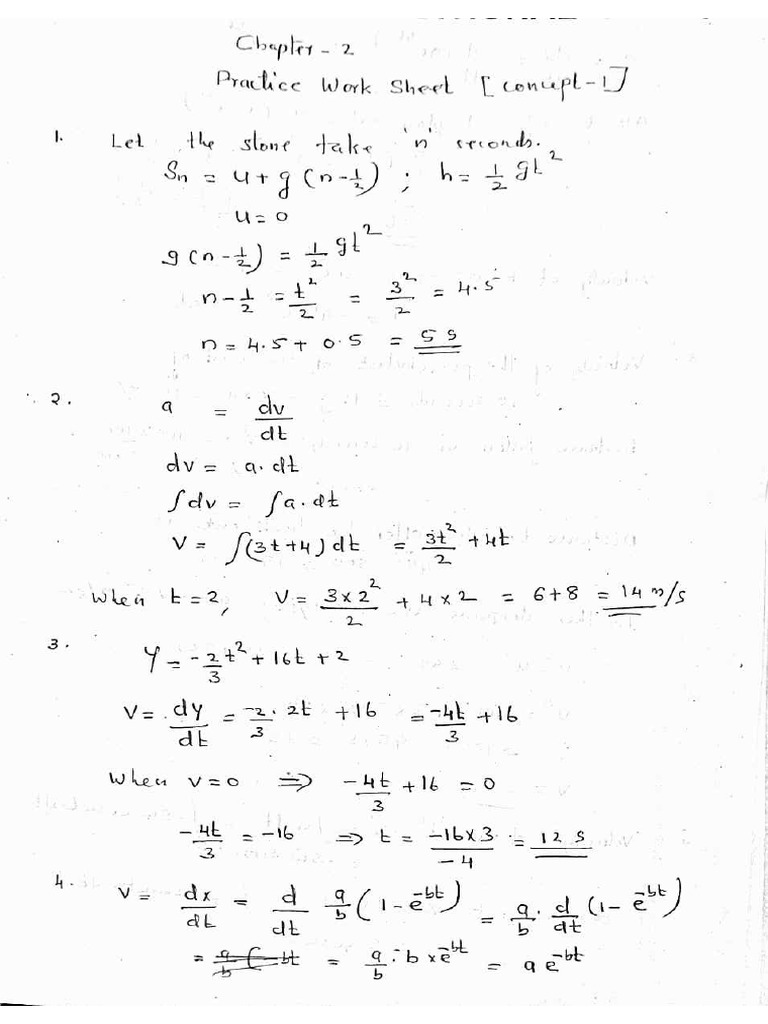 Chapter - 2
Practice Work Sheet [concept-1]
1. Let the stone take 'n' seconds.
Sn = u + g (n - 1/2) ; h = 1/2 gt²
u = 0
g (n - 1/2) = 1/2 gt²
n - 1/2 = t²/2 = 3²/2 = 4.5
n = 4.5 + 0.5 = 5 s
2. a = dv/dt
dv = a. dt
∫dv = ∫a. dt
V = ∫(3t+4) dt = 3t²/2 + 4t
When t = 2, V = 3×2²/2 + 4×2 = 6+8 = 14 m/s
3. Y = -2/3 t² + 16t + 2
V = dy/dt = -2/3 . 2t + 16 = -4t/3 + 16
When v = 0 ⇒ -4t/3 + 16 = 0
-4t/3 = -16 ⇒ t = -16×3/-4 = 12 s
4. V = dx/dt = d/dt a/b (1 - e^-bt) = a/b . d/dt (1 - e^-bt)
= a/b . - b × e^-bt = a e^-bt